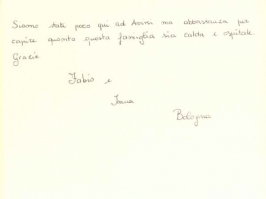 Siamo stati poco qui ad Assisi ma abbastanza per
capire quanto questa famiglia sia calda e ospitale
Grazie
Fabio e
Irene
Bologna